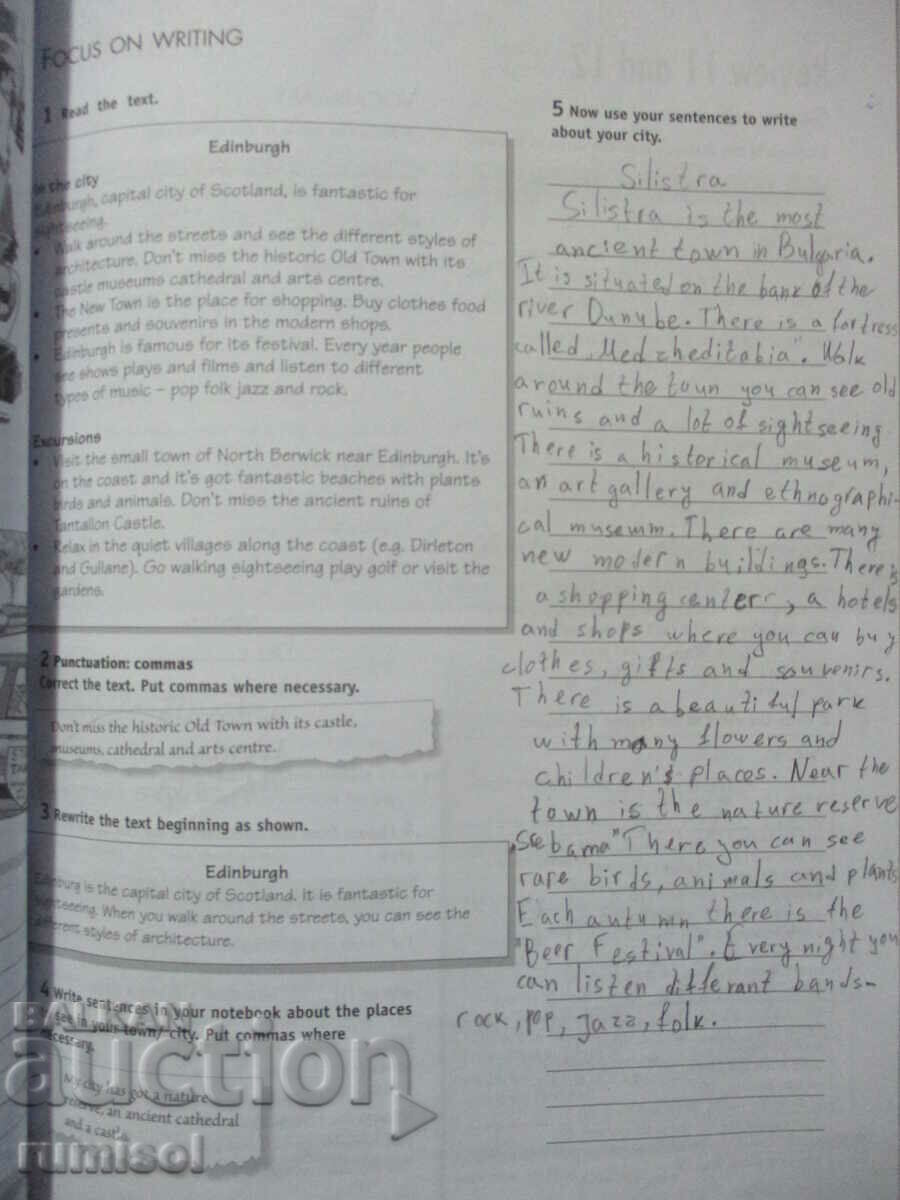 FOCUS ON WRITING
1 Read the text.
Edinburgh
In the city
Edinburgh, capital city of Scotland, is fantastic for
sightseeing.
• Walk around the streets and see the different styles of
architecture. Don't miss the historic Old Town with its
castle museums cathedral and arts centre.
• The New Town is the place for shopping. Buy clothes food
presents and souvenirs in the modern shops.
• Edinburgh is famous for its festival. Every year people
see shows plays and films and listen to different
types of music – pop folk jazz and rock.
Excursions
• Visit the small town of North Berwick near Edinburgh. It's
on the coast and it's got fantastic beaches with plants
birds and animals. Don't miss the ancient ruins of
Tantallon Castle.
• Relax in the quiet villages along the coast (e.g. Dirleton
and Gullane). Go walking sightseeing play golf or visit the
gardens.
2 Punctuation: commas
Correct the text. Put commas where necessary.
Don't miss the historic Old Town with its castle,
museums, cathedral and arts centre.
3 Rewrite the text beginning as shown.
Edinburgh
Edinburg is the capital city of Scotland. It is fantastic for
sightseeing. When you walk around the streets, you can see the
different styles of architecture.
4 Write sentences in your notebook about the places
to see in your town/ city. Put commas where
necessary.
My city has got a nature
reserve, an ancient cathedral
and a castle.
5 Now use your sentences to write
about your city.
Silistra
Silistra is the most
ancient town in Bulgaria.
It is situated on the bank of the
river Dunube. There is a fortress
called „Medzheditabia". Walk
around the town you can see old
ruins and a lot of sightseeing.
There is a historical museum,
an art gallery and ethnographi-
cal museum. There are many
new modern buildings. There is
a shopping center, a hotels
and shops where you can buy
clothes, gifts and souvenirs.
There is a beautiful park
with many flowers and
children's places. Near the
town is the nature reserve
„Srebarna" There you can see
rare birds, animals and plants
Each autumn there is the
"Beer Festival". Every night you
can listen differant bands-
rock, pop, jazz, folk.
BALKAN
auction
rumisol